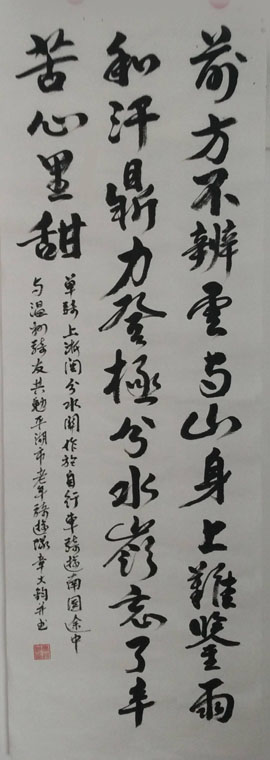 前方不辨雲与山身上難鑒雨
和汗鼎力登極分水嶺忘了辛
苦心里甜
單骑上浙闽分水關作於自行車骑遊南国途中
与温州骑友共勉平湖市老年骑遊隊章大鈞并书